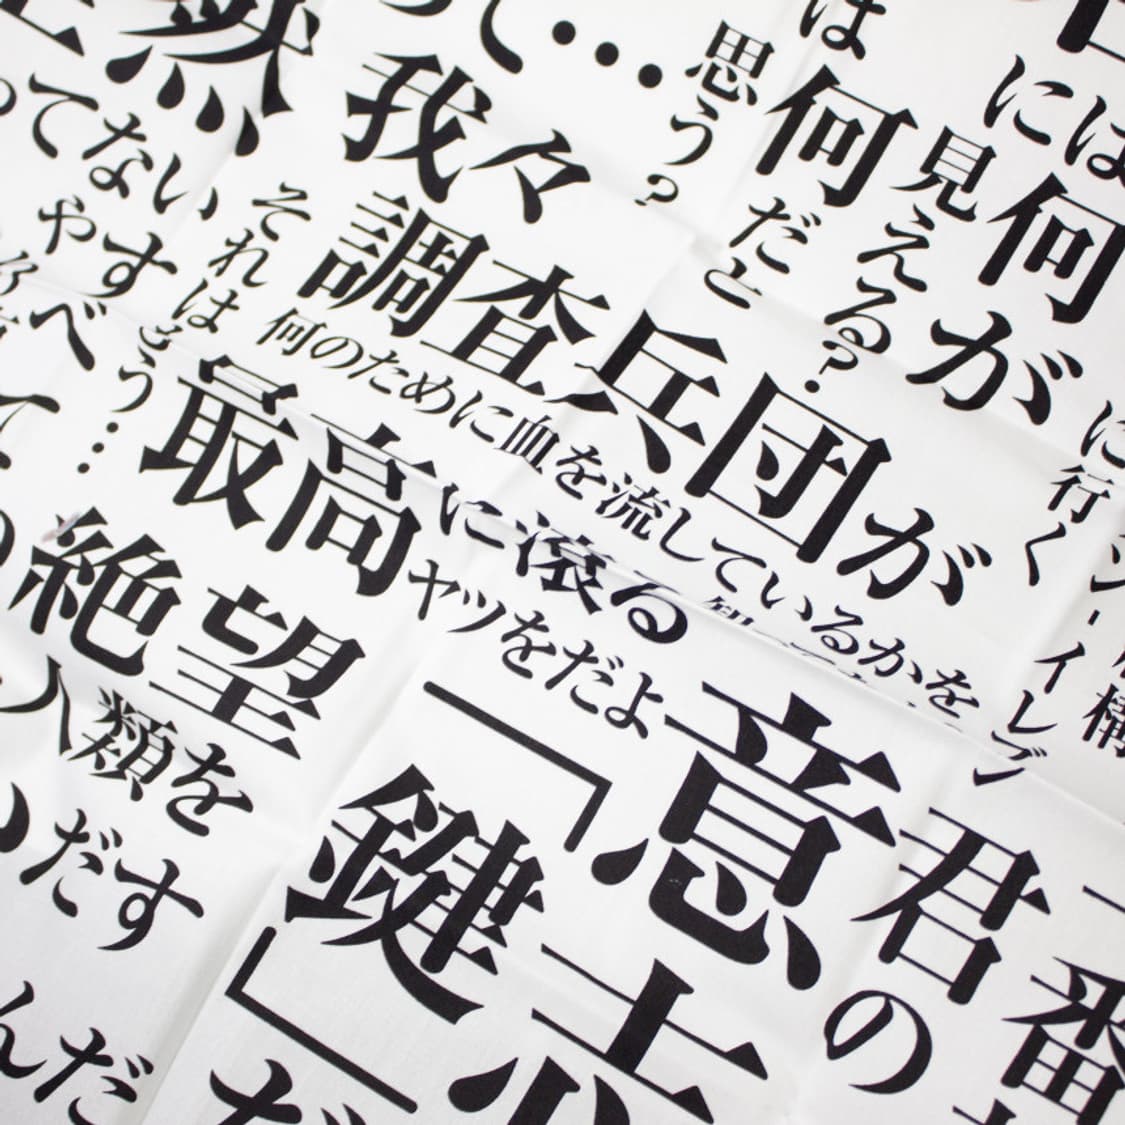 には何が
見える?
に行く
イレブ
は何だと
思う?
一番
君の
意志
て…
我々
調査兵団が
何のために血を流しているかを
それはもう…
最高に滾る
ヤツをだよ
「鍵」だ
ってない
やすべて
絶望
人類を
だす
んだ